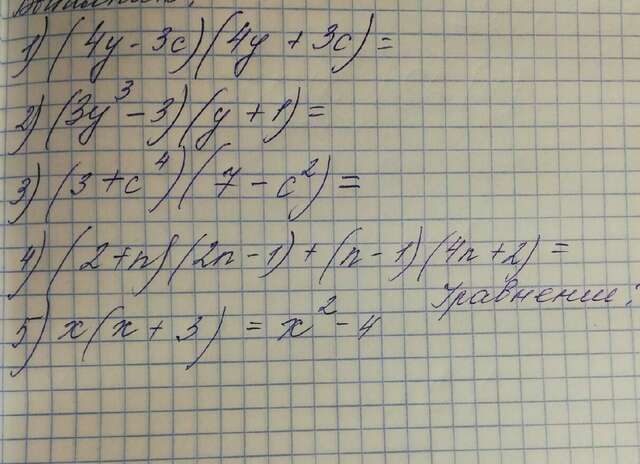 1) (4y - 3c)(4y + 3c) =
2) (3y³ - 3)(y + 1) =
3) (3 + c⁴)(7 - c²) =
4) (2 + n)(2n - 1) + (n - 1)(4n + 2) =
Уравнение:
5) x(x + 3) = x² - 4